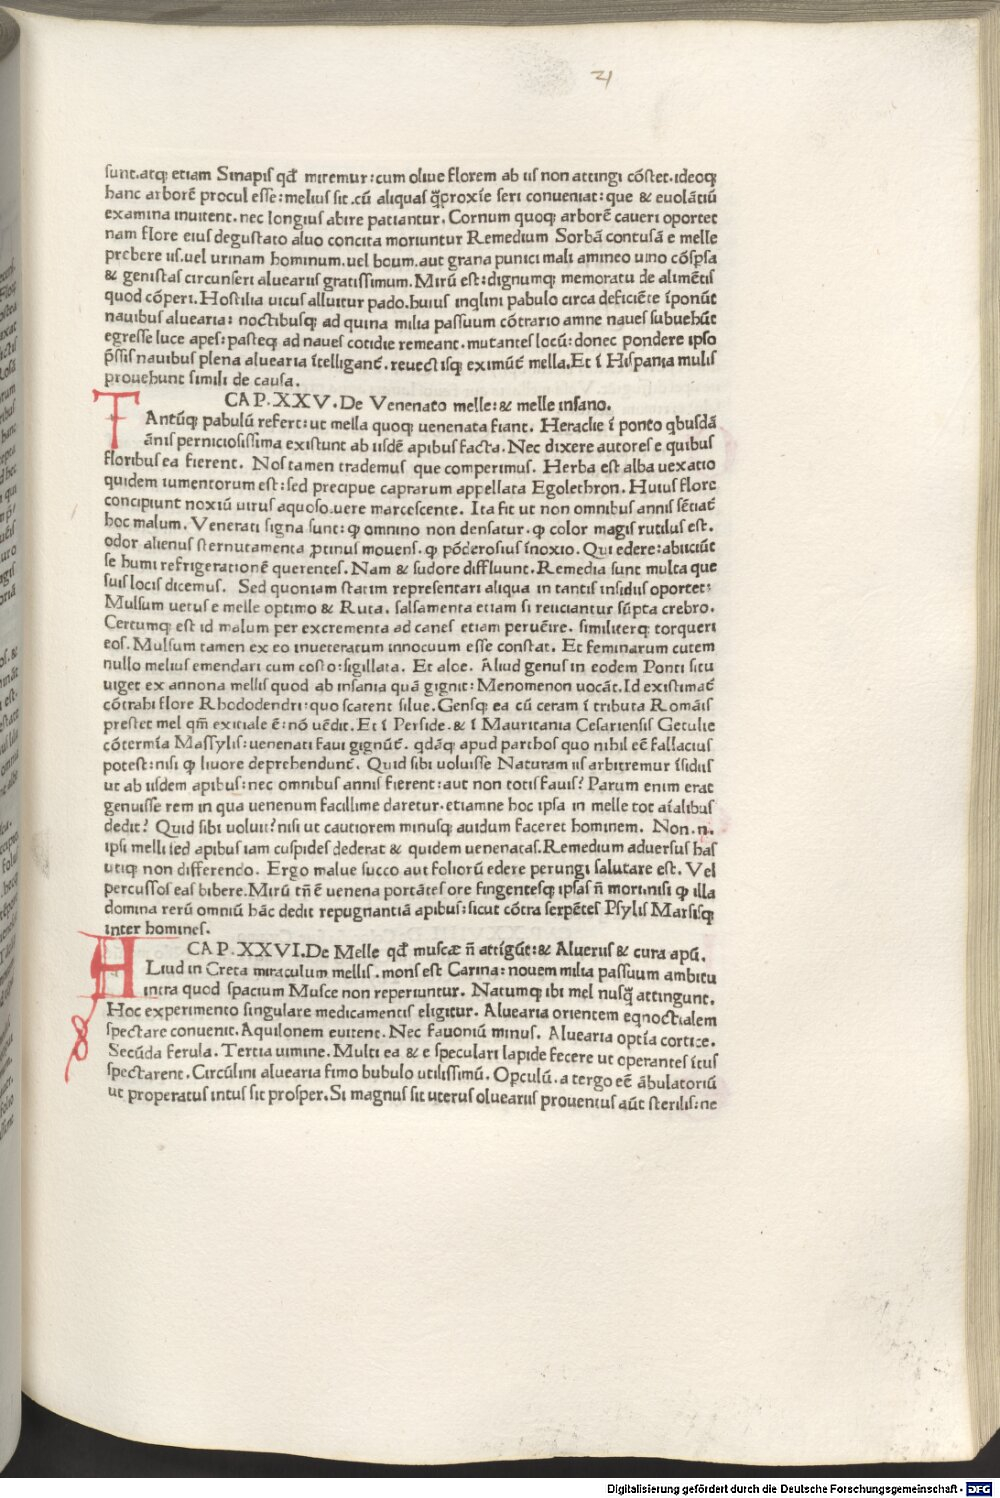 21
sunt.atqꝫ etiam Sinapis qđ miremur: cum oliue florem ab iis non attingi cōstet.ideoqꝫ
hanc arborē procul esse: melius sit.cū aliquas q̄proxīe seri conueniat: que & euolātiū
examina inuitent.nec longius abire patiantur. Cornum quoqꝫ arborē caueri oportet
nam flore eius degustato aluo concita moriuntur Remedium Sorbā contusā e melle
prebere iis.uel urinam hominum.uel boum.aut grana punici mali amineo uino cōspsa
& genistas circunseri aluearius gratissimum.Mirū est: dignumqꝫ memoratu de alimētis
quod cōperi.Hostilia uicus alluitur pado.huius inqlini pabulo circa deficiēte īponūt
nauibus aluearia: noctibusqꝫ ad quina milia passuum cōtrario amne naues subuehūt
egresse luce apes: pasteqꝫ ad naues cotidie remeant.mutantes locū: donec pondere ipso
p̄ssis nauibus plena aluearia ītelligant̄.reuectisqꝫ eximūt̄ mella.Et ī Hispania mulis
prouehunt simili de causa.
CAP.XXV.De Venenato melle: & melle insano.
TAntūqꝫ pabulū refert: ut mella quoqꝫ uenenata fiant. Heraclie ī ponto qbusdā
ānis perniciosissima existunt ab iisdē apibus facta.Nec dixere autores e quibus
floribus ea fierent. Nos tamen trademus que comperimus. Herba est alba uexatio
quidem iumentorum est: sed precipue caprarum appellata Egolethron.Huius flore
concipiunt noxiū uirus aquoso.uere marcescente. Ita fit ut non omnibus annis sētiat̄
hoc malum. Venerati signa sunt: ꝙ omnino non densatur.ꝙ color magis rutilus est.
odor alienus sternutamenta ꝓtinus mouens.ꝙ pōderosius īnoxio. Qui edere: abiiciūt
se humi refrigerationē querentes.Nam & sudore diffluunt.Remedia sunt multa que
suis locis dicemus. Sed quoniam statim representari aliqua in tantis insidiis oportet:
Mulsum uetus e melle optimo & Ruta. salsamenta etiam si reiiciantur sūpta crebro.
Certumqꝫ est id malum per excrementa ad canes etiam peruēire. similiterqꝫ torqueri
eos.Mulsum tamen ex eo inueteratum innocuum esse constat. Et feminarum cutem
nullo melius emendari cum costo: sigillata. Et aloe. Aliud genus in eodem Ponti situ
uiget ex annona mellis quod ab insania quā gignit: Menomenon uocāt.Id existimat̄
cōtrahi flore Rhododendri: quo scatent silue.Gensqꝫ ea cū ceram ī tributa Romāis
prestet mel qm̄ exitiale ē: nō uēdit.Et ī Perside.& ī Mauritania Cesariensis Getulie
cōtermīa Massylis: uenenati faui gignūt̄. qdāqꝫ apud parthos quo nihil eē fallacius
potest: nisi ꝙ liuore deprehendunt̄. Quid sibi uoluisse Naturam iis arbitremur īsidiis
ut ab iisdem apibus: nec omnibus annis fierent: aut non totis fauis? Parum enim erat
genuisse rem in qua uenenum facillime daretur.etiamne hoc ipsa in melle tot aīalibus
dedit? Quid sibi uoluit? nisi ut cautiorem minusqꝫ auidum faceret hominem. Non.n.
ipsi melli sed apibus iam cuspides dederat & quidem uenenatas.Remedium aduersus has
utiqꝫ non differendo. Ergo malue succo aut foliorū edere perungi salutare est. Vel
percussos eas bibere.Mirū tn̄ ē uenena portātes ore fingentesqꝫ ipsas n̄ mori.nisi ꝙ illa
domina rerū omniū hāc dedit repugnantiā apibus: sicut cōtra serpētes Psylis Marsisqꝫ
inter homines.
CAP.XXVI.De Melle qđ muscæ n̄ attigūt: & Alueriis & cura apū.
ALiud in Creta miraculum mellis.mons est Carina: nouem milia passuum ambitu
intra quod spacium Musce non reperiuntur. Natumqꝫ ibi mel nusq̄ attingunt.
Hoc experimento singulare medicamentis eligitur. Aluearia orientem eqnoctialem
spectare conuenit.Aquilonem euitent.Nec fauoniū minus. Aluearia optīa cortice.
Secūda ferula.Tertia uimine.Multi ea & e speculari lapide fecere ut operantes ītus
spectarent.Circūlini aluearia fimo bubulo utilissimū. Opculū.a tergo eē ābulatoriū
ut properatus intus sit prosper.Si magnus sit uterus oluearius prouentus aūt sterilis: ne
Digitalisierung gefördert durch die Deutsche Forschungsgemeinschaft - DFG